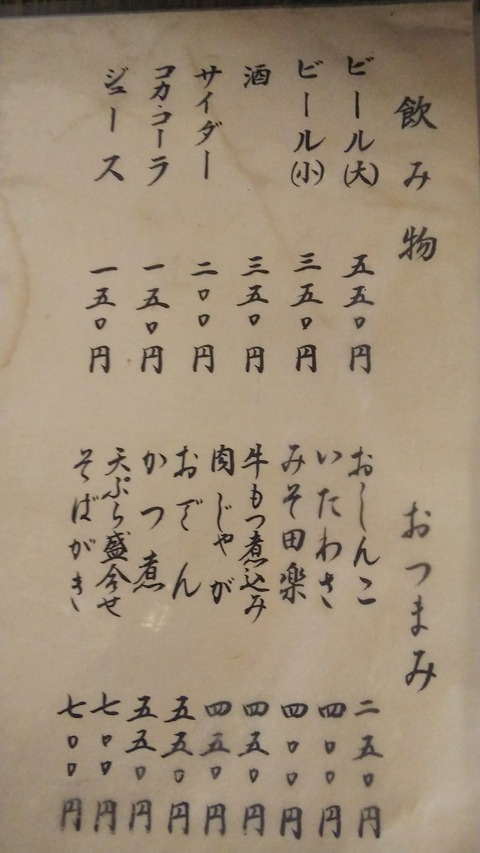 飲み物
ビール(大) 五五〇円
ビール(小) 三五〇円
酒 三五〇円
サイダー 二〇〇円
コカ・コーラ 一五〇円
ジュース 一五〇円
おつまみ
おしんこ 二五〇円
いたわさ 四〇〇円
みそ田楽 四〇〇円
牛もつ煮込み 四五〇円
肉じゃが 四五〇円
おでん 五五〇円
かつ煮 五五〇円
天ぷら盛合せ 七〇〇円
そばがき 七〇〇円